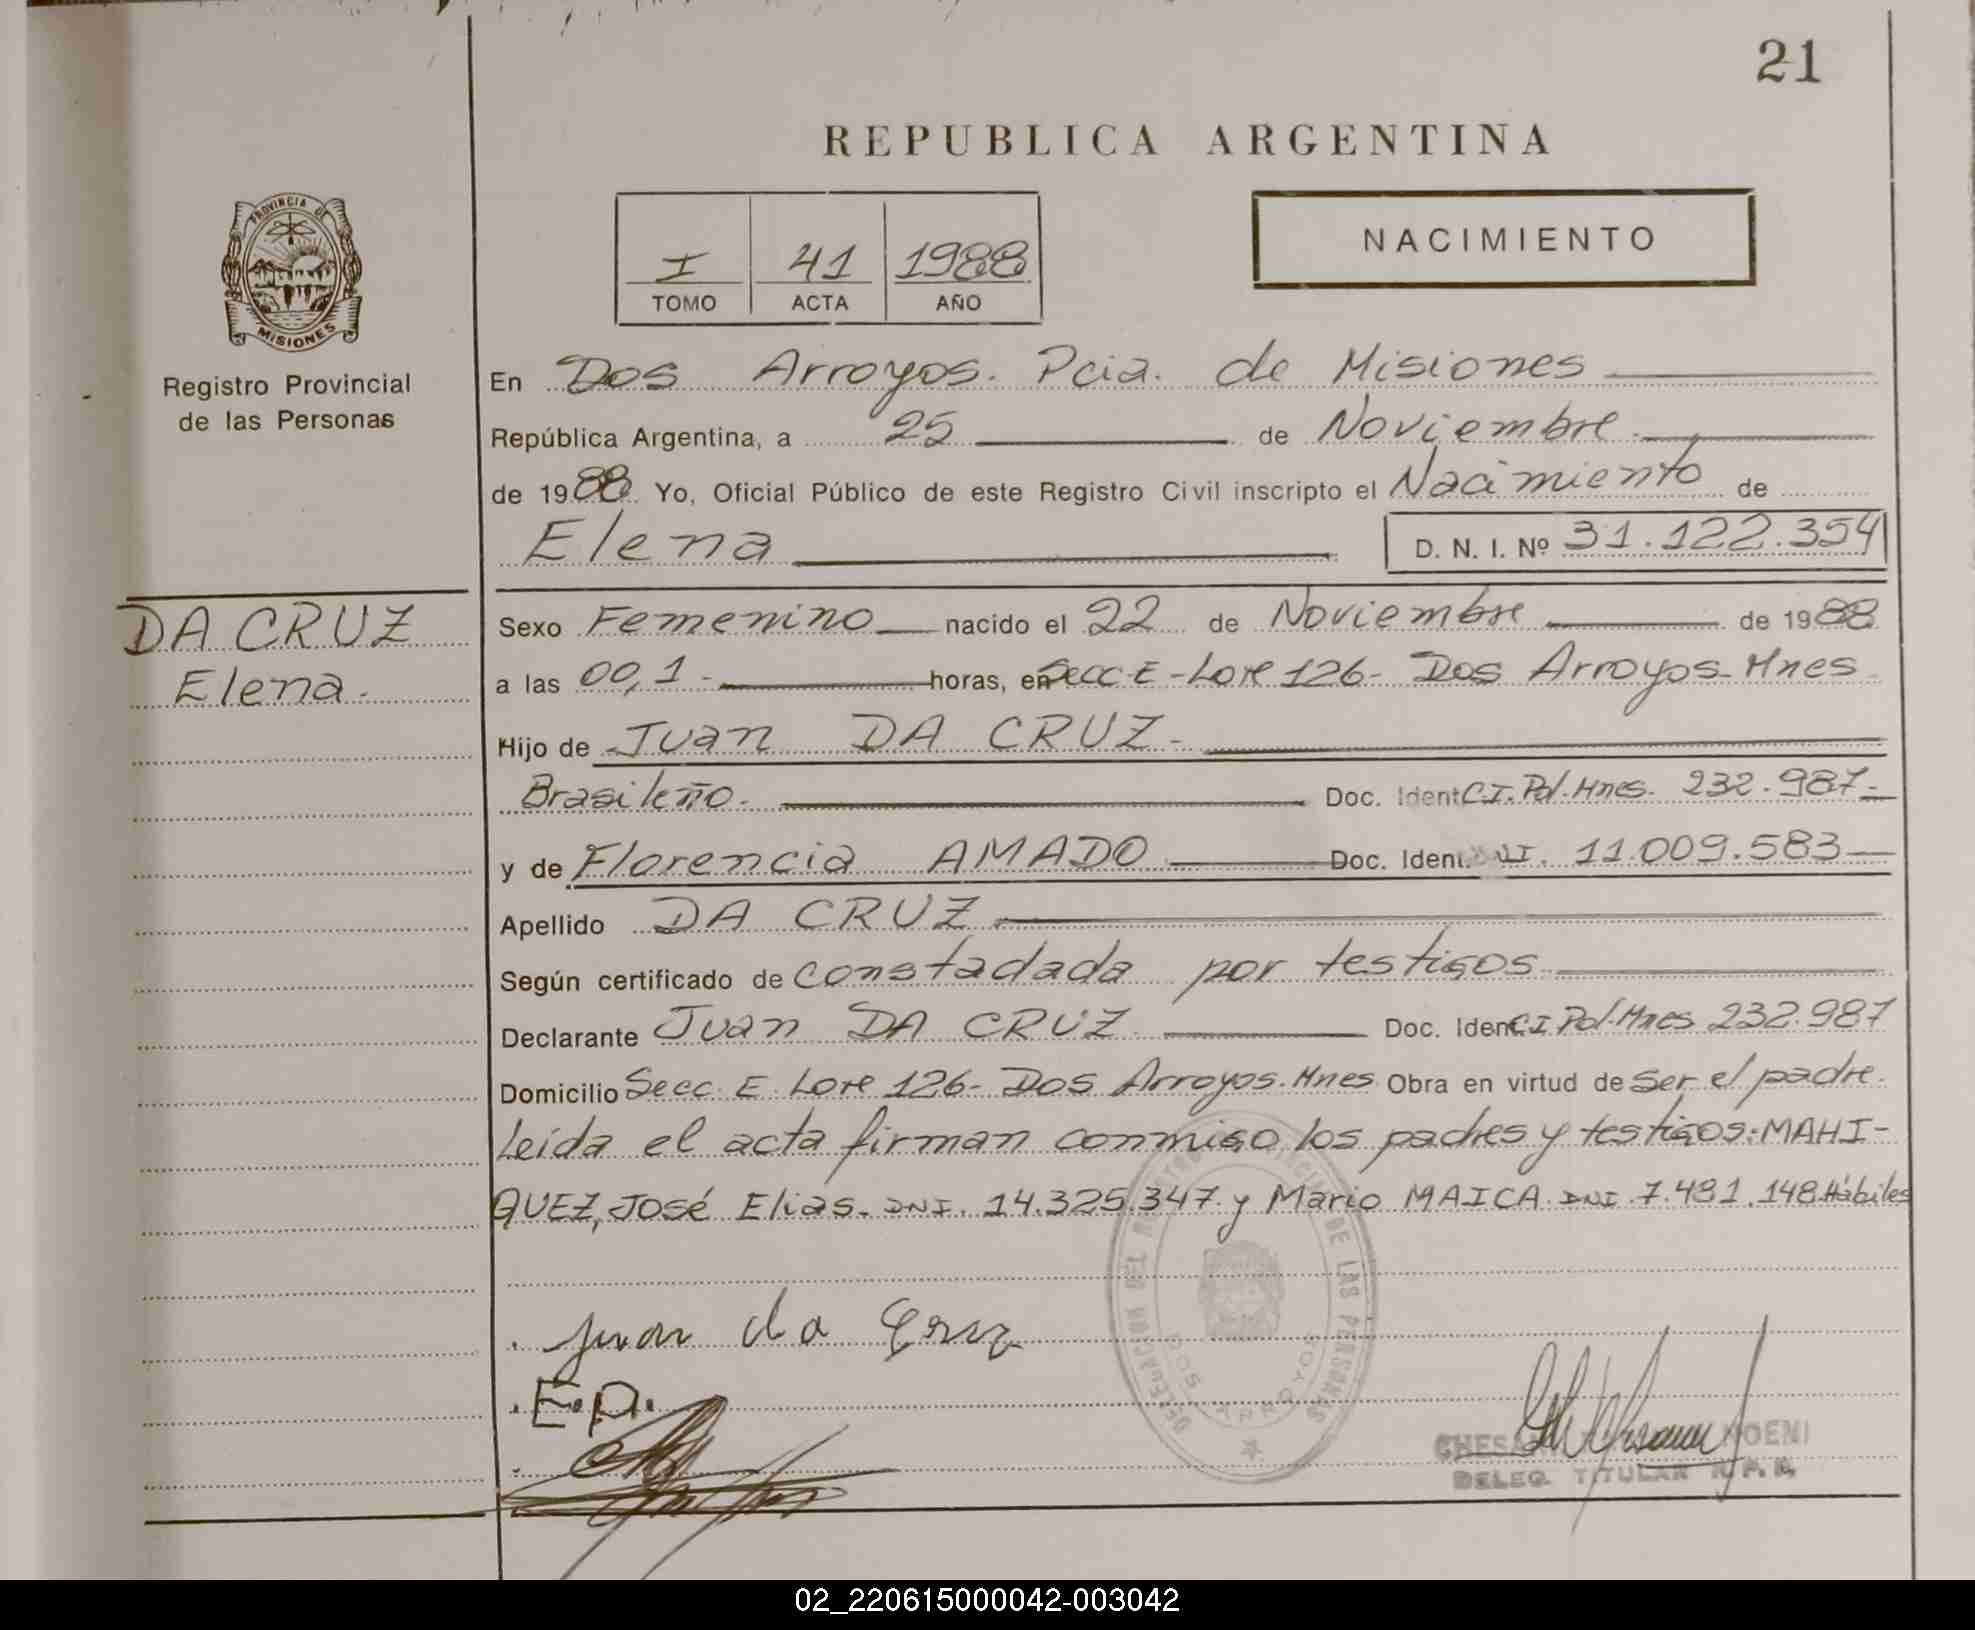 21
REPUBLICA ARGENTINA
PROVINCIA DE
MISIONES
Registro Provincial
de las Personas
I 41 1988
TOMO ACTA AÑO
NACIMIENTO
En Dos Arroyos. Pcia. de Misiones
República Argentina, a 25 de Noviembre
de 1988 Yo, Oficial Público de este Registro Civil inscripto el Nacimiento de
Elena D. N. I. Nº 31.122.354
DA CRUZ
Elena.
Sexo Femenino nacido el 22 de Noviembre de 1988
a las 00,1 horas, en Secc E - Lote 126 - Dos Arroyos Mnes
Hijo de Juan DA CRUZ -
Brasileño. Doc. Ident C.I. Pol. Mnes. 232.987 -
y de Florencia AMADO Doc. Ident. DNI. 11.009.583
Apellido DA CRUZ
Según certificado de constadada por testigos
Declarante Juan DA CRUZ Doc. Ident C.I Pol. Mnes 232.987
Domicilio Secc. E. Lote 126 - Dos Arroyos. Mnes Obra en virtud de ser el padre.
Leída el acta firman conmigo los padres y testigos: MAHI-
QUEZ, José Elias. DNI. 14.325.347 y Mario MAICA DNI 7.481.148 Hábiles
Juan da Cruz
E.D.
DELEGACION DEL REGISTRO PROVINCIAL DE LAS PERSONAS
DOS ARROYOS
DELEG. TITULAR R.P.P.
02_220615000042-003042